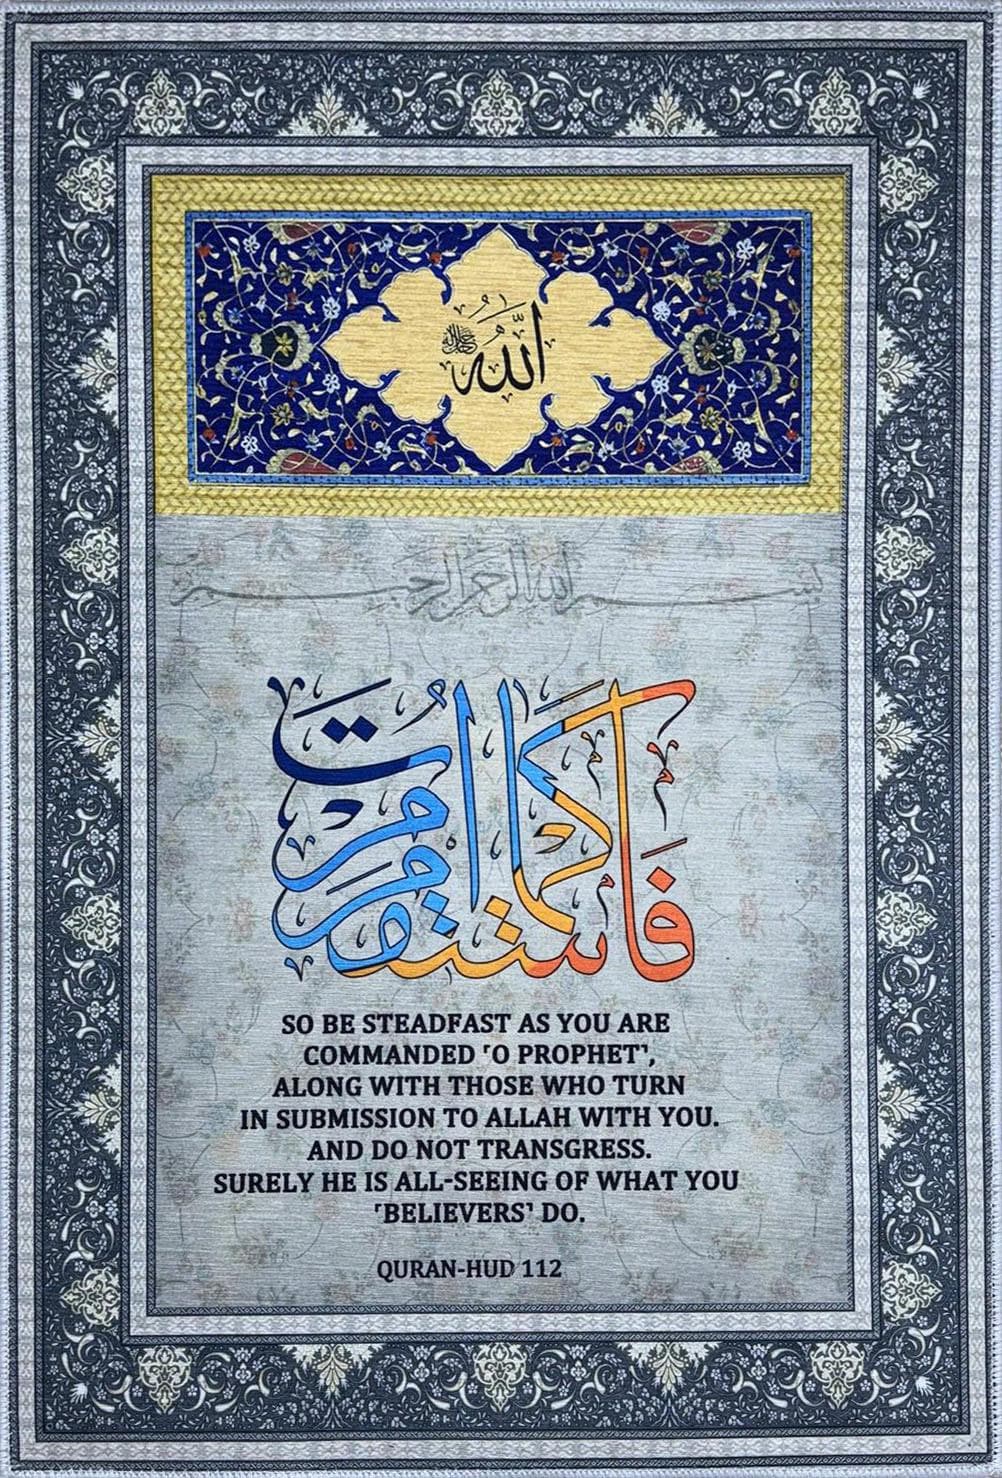 الله جل جلاله
بسم الله الرحمن الرحيم
فَاسْتَقِمْ كَمَا أُمِرْتَ
SO BE STEADFAST AS YOU ARE
COMMANDED ˹O PROPHET˺,
ALONG WITH THOSE WHO TURN
IN SUBMISSION TO ALLAH WITH YOU.
AND DO NOT TRANSGRESS.
SURELY HE IS ALL-SEEING OF WHAT YOU
˹BELIEVERS˺ DO.
QURAN-HUD 112